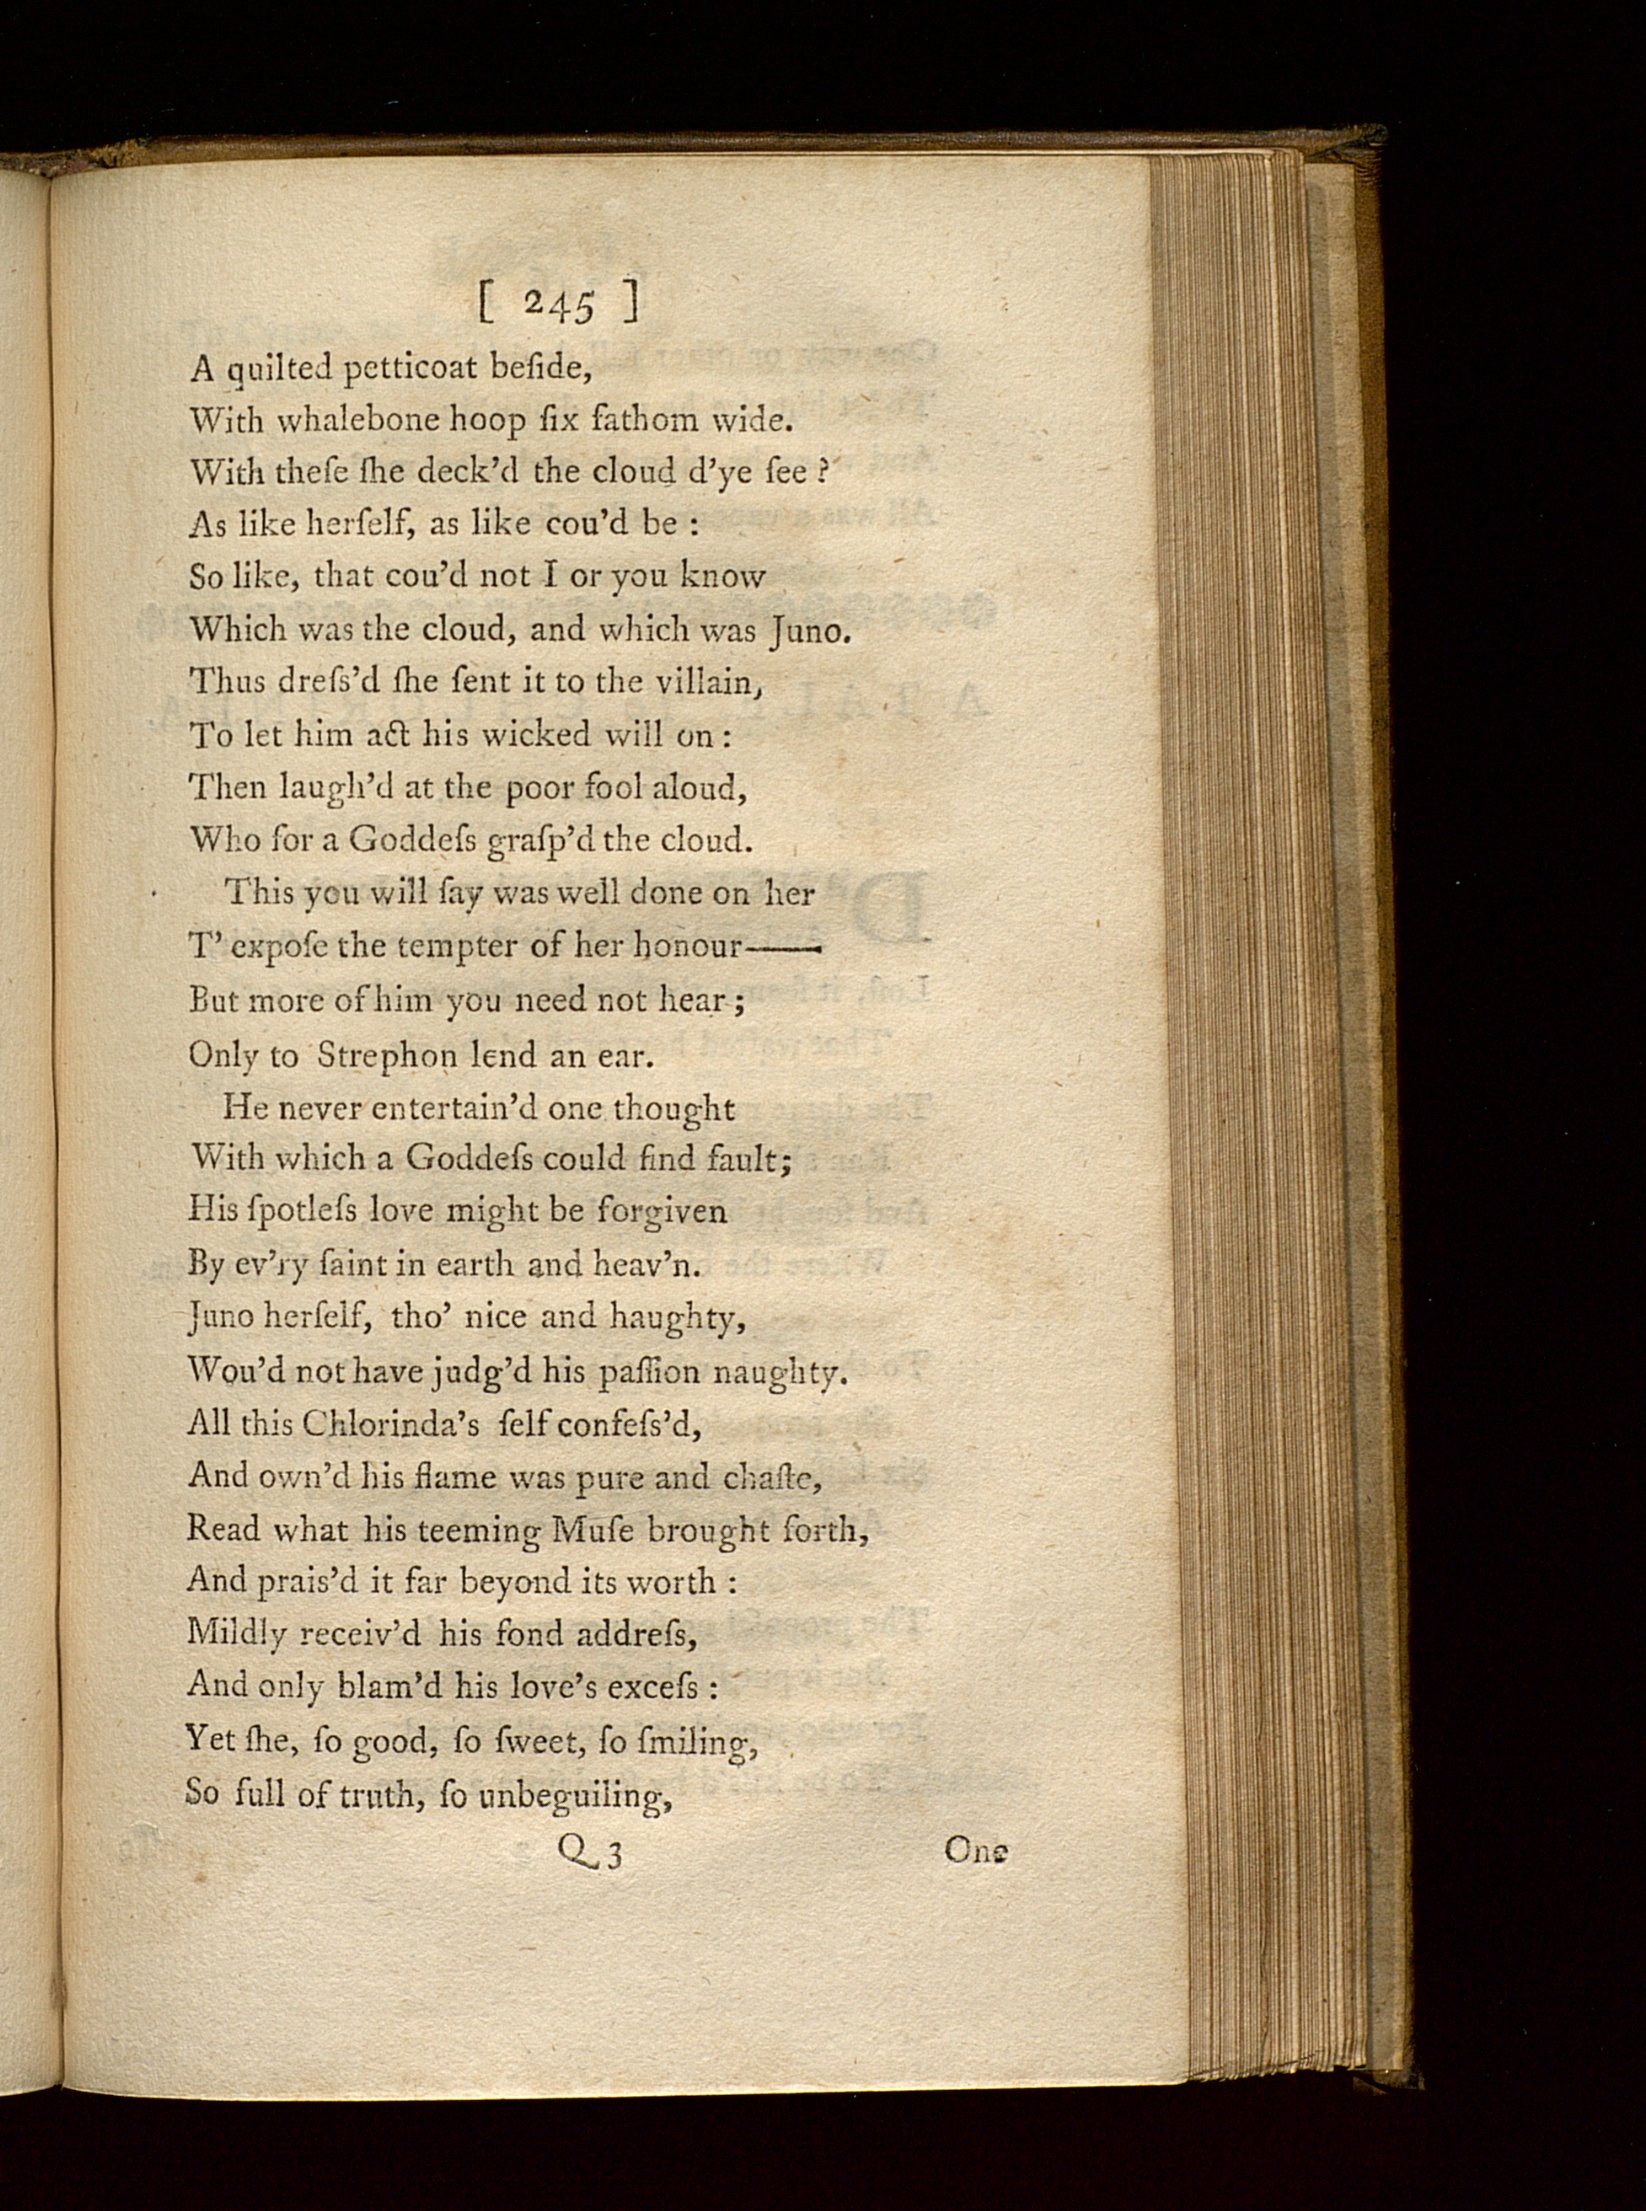 [ 245 ]
A quilted petticoat beſide,
With whalebone hoop ſix fathom wide.
With theſe ſhe deck'd the cloud d'ye ſee ?
As like herſelf, as like cou'd be :
So like, that cou'd not I or you know
Which was the cloud, and which was Juno.
Thus dreſs'd ſhe ſent it to the villain,
To let him act his wicked will on :
Then laugh'd at the poor fool aloud,
Who for a Goddeſs graſp'd the cloud.
This you will ſay was well done on her
T' expoſe the tempter of her honour——
But more of him you need not hear ;
Only to Strephon lend an ear.
He never entertain'd one thought
With which a Goddeſs could find fault;
His ſpotleſs love might be forgiven
By ev'ry ſaint in earth and heav'n.
Juno herſelf, tho' nice and haughty,
Wou'd not have judg'd his paſſion naughty.
All this Chlorinda's ſelf confeſs'd,
And own'd his flame was pure and chaſte,
Read what his teeming Muſe brought forth,
And prais'd it far beyond its worth :
Mildly receiv'd his fond addreſs,
And only blam'd his love's exceſs :
Yet ſhe, ſo good, ſo ſweet, ſo ſmiling,
So full of truth, ſo unbeguiling,
Q 3 One